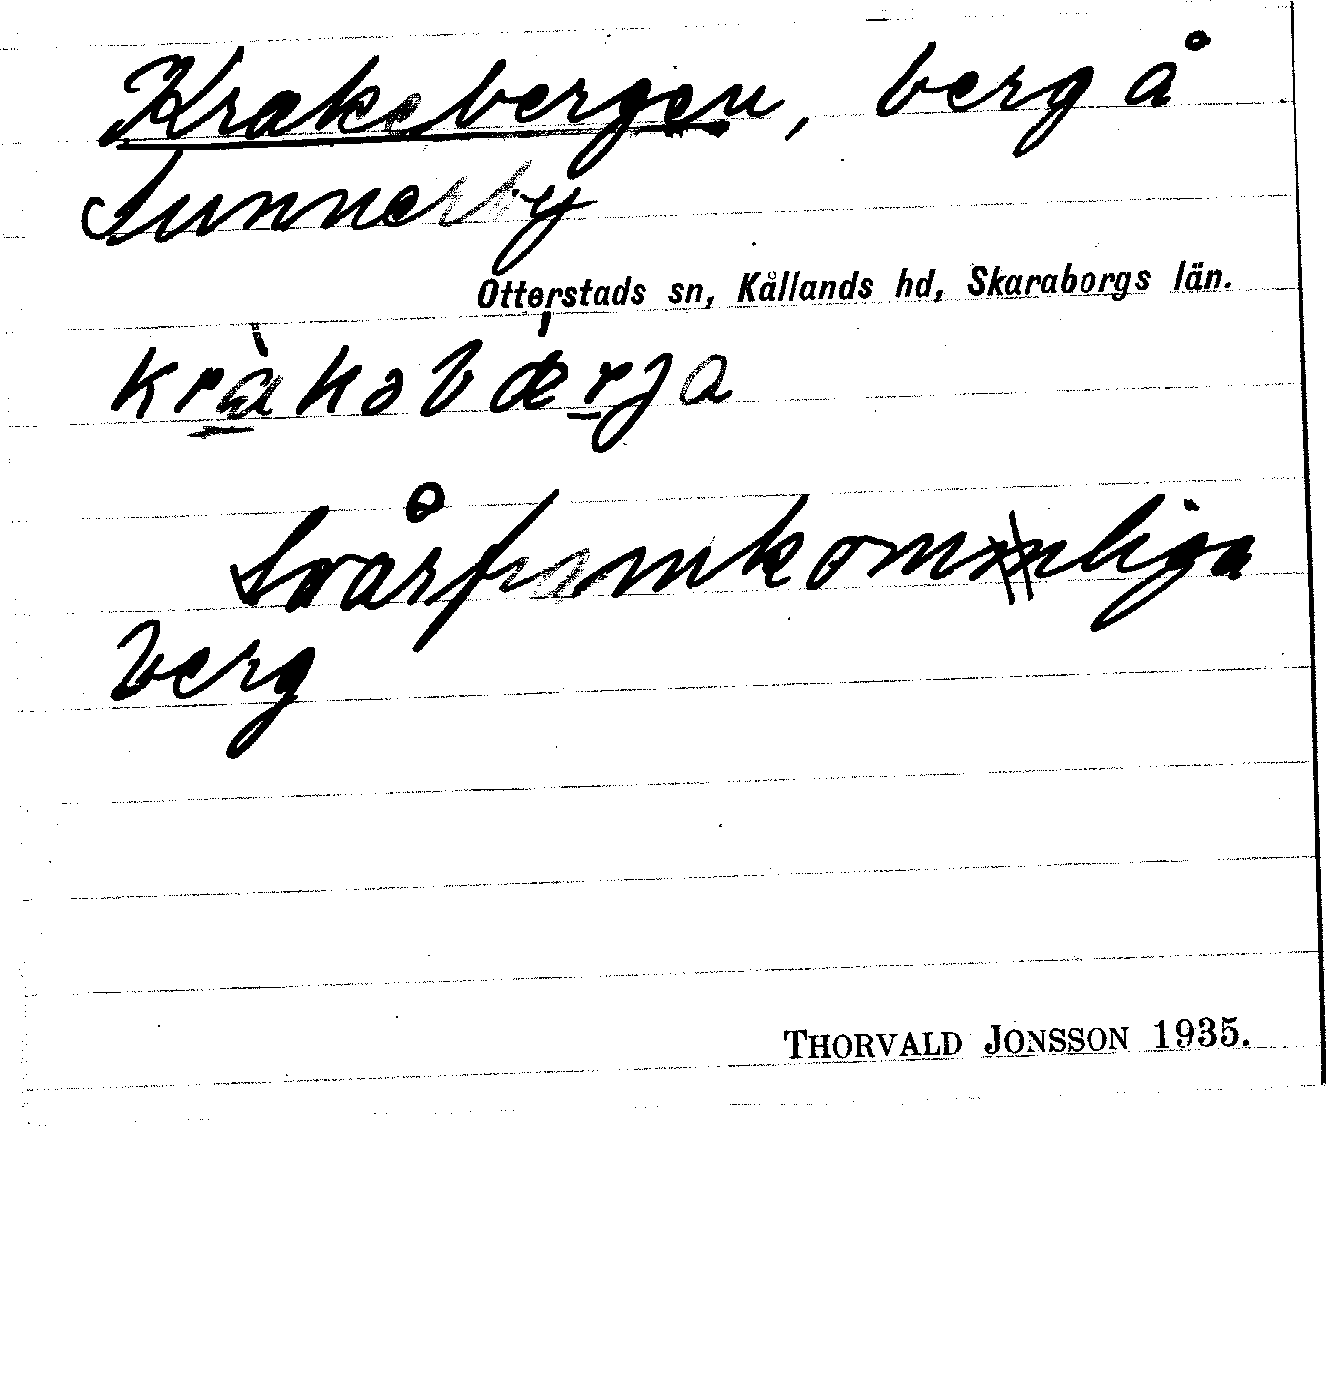 Krakebergen, berg å
Sunnerby
Otterstads sn, Kållands hd, Skaraborgs län.
kràkabærja
Svårframkomliga
berg
THORVALD JONSSON 1935.